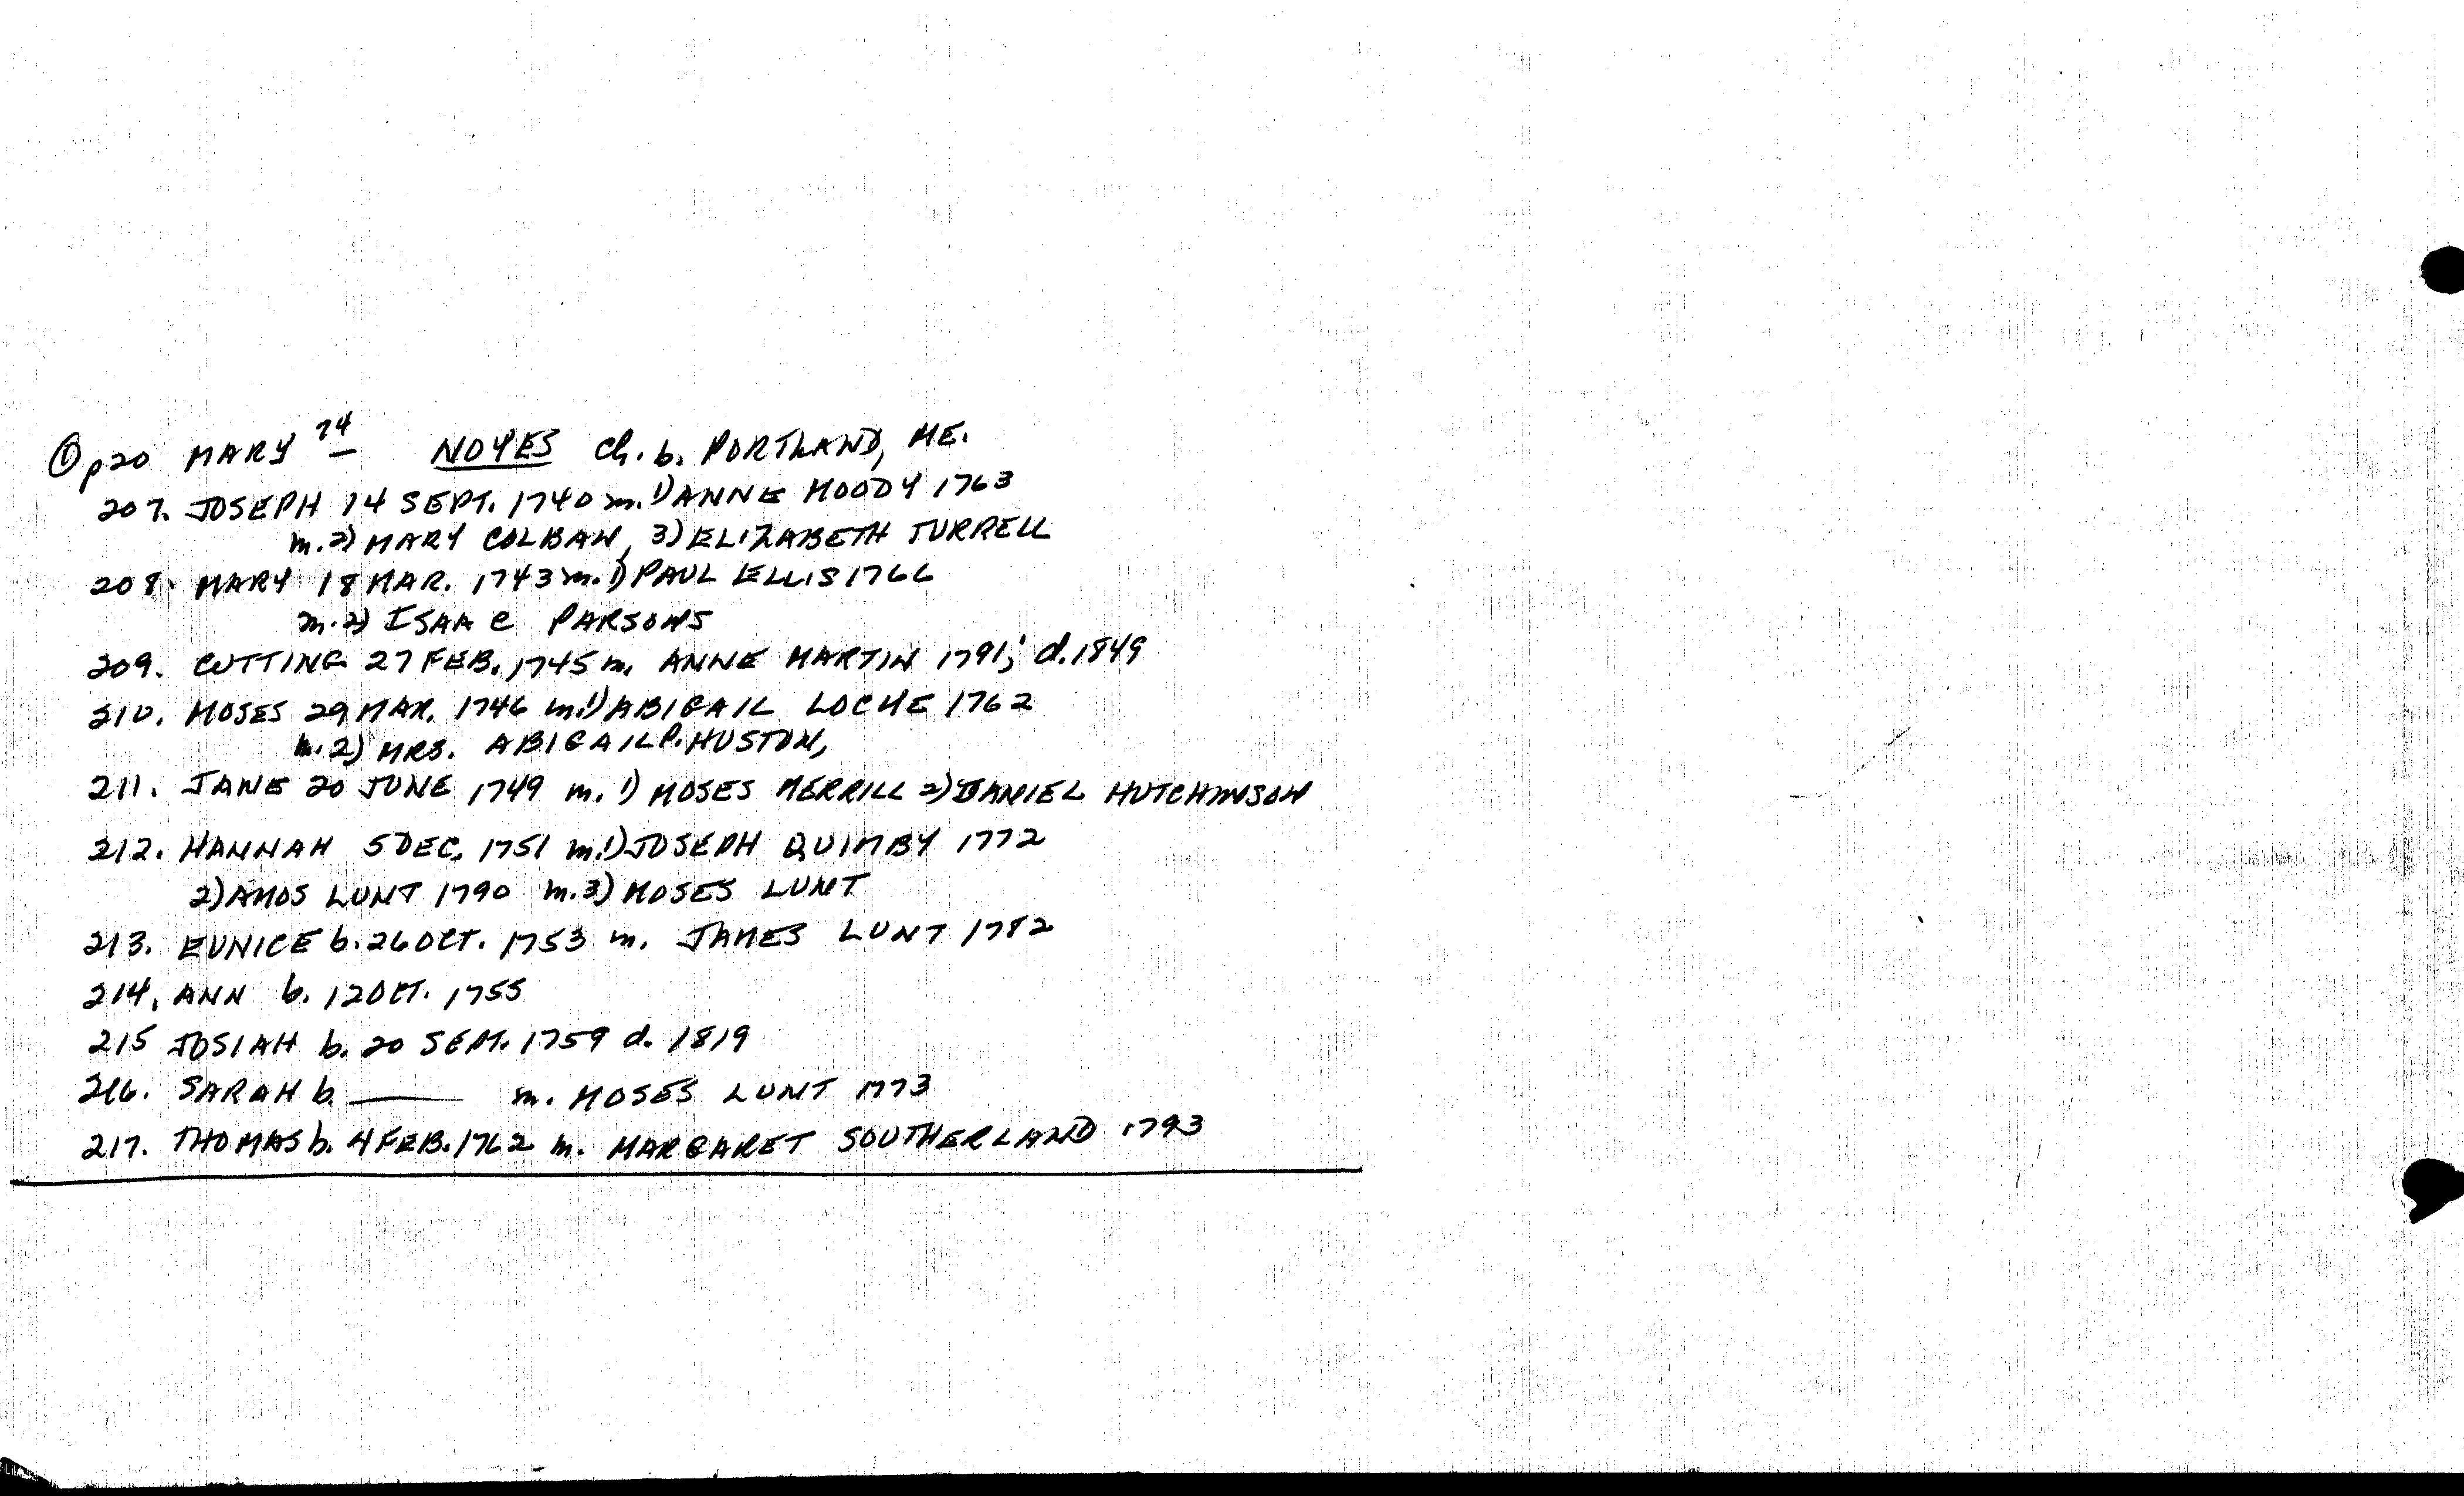 ① p20 MARY 74 NOYES Ch. b. PORTLAND, ME.
207. JOSEPH 14 SEPT. 1740 m. 1) ANNE MOODY 1763
m. 2) MARY COLBAN, 3) ELIZABETH TURRELL
208. MARY 18 MAR. 1743 m. 1) PAUL ELLIS 1766
m. 2) ISAAC PARSONS
209. CUTTING 27 FEB. 1745 m. ANNE MARTIN 1791; d. 1849
210. MOSES 29 MAR. 1746 m. 1) ABIGAIL LOCKE 1762
m. 2) MRS. ABIGAIL P. HUSTON,
211. JANE 20 JUNE 1749 m. 1) MOSES MERRILL 2) DANIEL HUTCHINSON
212. HANNAH 5 DEC. 1751 m. 1) JOSEPH QUIMBY 1772
2) AMOS LUNT 1790 m. 3) MOSES LUNT
213. EUNICE b. 26 OCT. 1753 m. JAMES LUNT 1782
214. ANN b. 12 OCT. 1755
215 JOSIAH b. 20 SEPT. 1759 d. 1819
216. SARAH b. ——— m. MOSES LUNT 1773
217. THOMAS b. 4 FEB. 1762 m. MARGARET SOUTHERLAND 1793